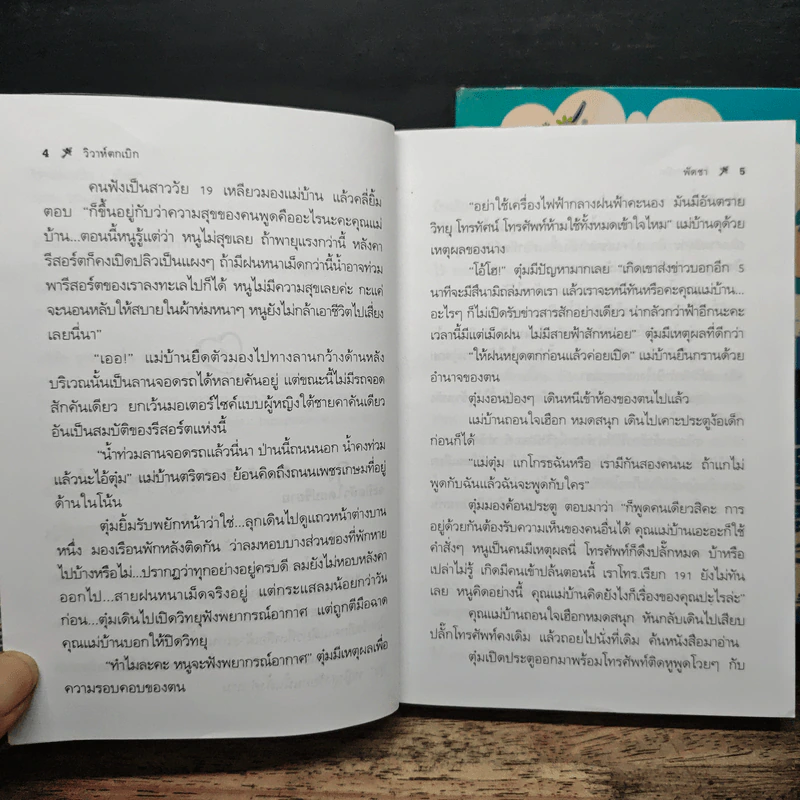 4 วิวาห์ตกเบิก
คนฟังเป็นสาววัย 19 เหลียวมองแม่บ้าน แล้วคลี่ยิ้ม
ตอบ "ก็ขึ้นอยู่กับว่าความสุขของคนพูดคืออะไรนะคะคุณแม่
บ้าน...ตอนนี้หนูรู้แต่ว่า หนูไม่สุขเลย ถ้าพายุแรงกว่านี้ หลังคา
รีสอร์ตก็คงเปิดปลิวเป็นแผงๆ ถ้ามีฝนหนาเม็ดกว่านี้น้ำอาจท่วม
พารีสอร์ตของเราลงทะเลไปก็ได้ หนูไม่มีความสุขเลยค่ะ กะแค่
จะนอนหลับให้สบายในผ้าห่มหนาๆ หนูยังไม่กล้าเอาชีวิตไปเสี่ยง
เลยนี่นา"
"เออ!" แม่บ้านยืดตัวมองไปทางลานกว้างด้านหลัง
บริเวณนั้นเป็นลานจอดรถได้หลายคันอยู่ แต่ขณะนี้ไม่มีรถจอด
สักคันเดียว ยกเว้นมอเตอร์ไซค์แบบผู้หญิงใต้ชายคาคันเดียว
อันเป็นสมบัติของรีสอร์ตแห่งนี้
"น้ำท่วมลานจอดรถแล้วนี่นา ป่านนี้ถนนนอก น้ำคงท่วม
แล้วนะไอ้ตุ่ม" แม่บ้านตริตรอง ย้อนคิดถึงถนนเพชรเกษมที่อยู่
ด้านในโน้น
ตุ่มยิ้มรับพยักหน้าว่าใช่...ลุกเดินไปดูแถวหน้าต่างบาน
หนึ่ง มองเรือนพักหลังติดกัน ว่าลมหอบบางส่วนของที่พักหาย
ไปบ้างหรือไม่...ปรากฏว่าทุกอย่างอยู่ครบดี ลมยังไม่หอบหลังคา
ออกไป...สายฝนหนาเม็ดจริงอยู่ แต่กระแสลมน้อยกว่าวัน
ก่อน...ตุ่มเดินไปเปิดวิทยุฟังพยากรณ์อากาศ แต่ถูกตีมือฉาด
คุณแม่บ้านบอกให้ปิดวิทยุ
"ทำไมละคะ หนูจะฟังพยากรณ์อากาศ" ตุ่มมีเหตุผลเพื่อ
ความรอบคอบของตน
พัดชา 5
"อย่าใช้เครื่องไฟฟ้ากลางฝนฟ้าคะนอง มันมีอันตราย
วิทยุ โทรทัศน์ โทรศัพท์ห้ามใช้ทั้งหมดเข้าใจไหม" แม่บ้านดุด้วย
เหตุผลของนาง
"โอ้โฮ!" ตุ่มมีปัญหามากเลย "เกิดเขาส่งข่าวบอกอีก 5
นาทีจะมีสึนามิถล่มหาดเรา แล้วเราจะหนีทันหรือคะคุณแม่บ้าน...
อะไรๆ ก็ไม่เปิดรับข่าวสารสักอย่างเดียว น่ากลัวกว่าฟ้าอีกนะคะ
เวลานี้มีแต่เม็ดฝน ไม่มีสายฟ้าสักหน่อย" ตุ่มมีเหตุผลที่ดีกว่า
"ให้ฝนหยุดตกก่อนแล้วค่อยเปิด" แม่บ้านยืนกรานด้วย
อำนาจของตน
ตุ่มงอนป่องๆ เดินหนีเข้าห้องของตนไปแล้ว
แม่บ้านถอนใจเฮือก หมดสนุก เดินไปเคาะประตูง้อเด็ก
ก่อนก็ได้
"แม่ตุ่ม แกโกรธฉันหรือ เรามีกันสองคนนะ ถ้าแกไม่
พูดกับฉันแล้วฉันจะพูดกับใคร"
ตุ่มมองค้อนประตู ตอบมาว่า "ก็พูดคนเดียวสิคะ การ
อยู่ด้วยกันต้องรับความเห็นของคนอื่นได้ คุณแม่บ้านเอะอะก็ใช้
คำสั่งๆ หนูเป็นคนมีเหตุผลนี่ โทรศัพท์ก็ดึงปลั๊กหมด บ้าหรือ
เปล่าไม่รู้ เกิดมีคนเข้าปล้นตอนนี้ เราโทร.เรียก 191 ยังไม่ทัน
เลย หนูคิดอย่างนี้ คุณแม่บ้านคิดยังไงก็เรื่องของคุณปะไรล่ะ"
คุณแม่บ้านถอนใจเฮือกหมดสนุก หันกลับเดินไปเสียบ
ปลั๊กโทรศัพท์คงเดิม แล้วถอยไปนั่งที่เดิม ค้นหนังสือมาอ่าน
ตุ่มเปิดประตูออกมาพร้อมโทรศัพท์ติดหูพูดโวยๆ กับ